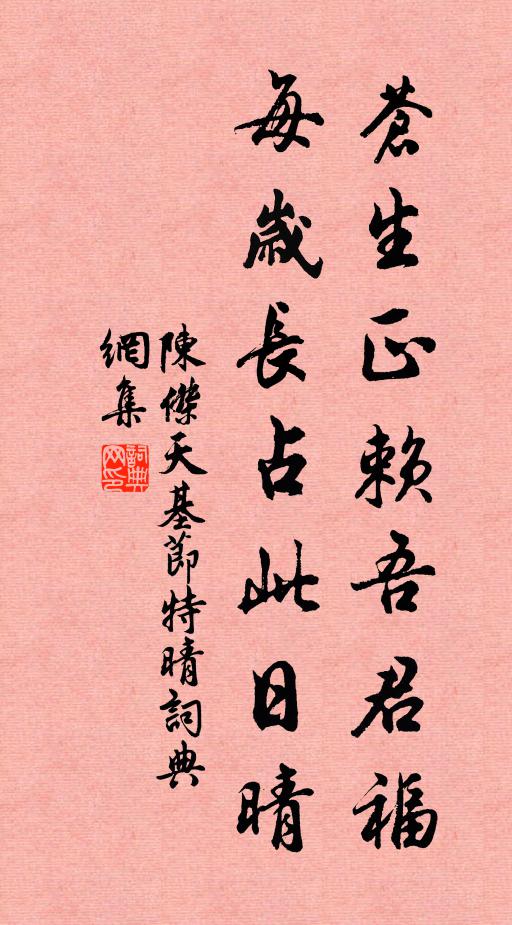 蒼生正賴吾君福
每歲長占此日晴
陳傑天基節特晴詞典
網集
詞典
网印